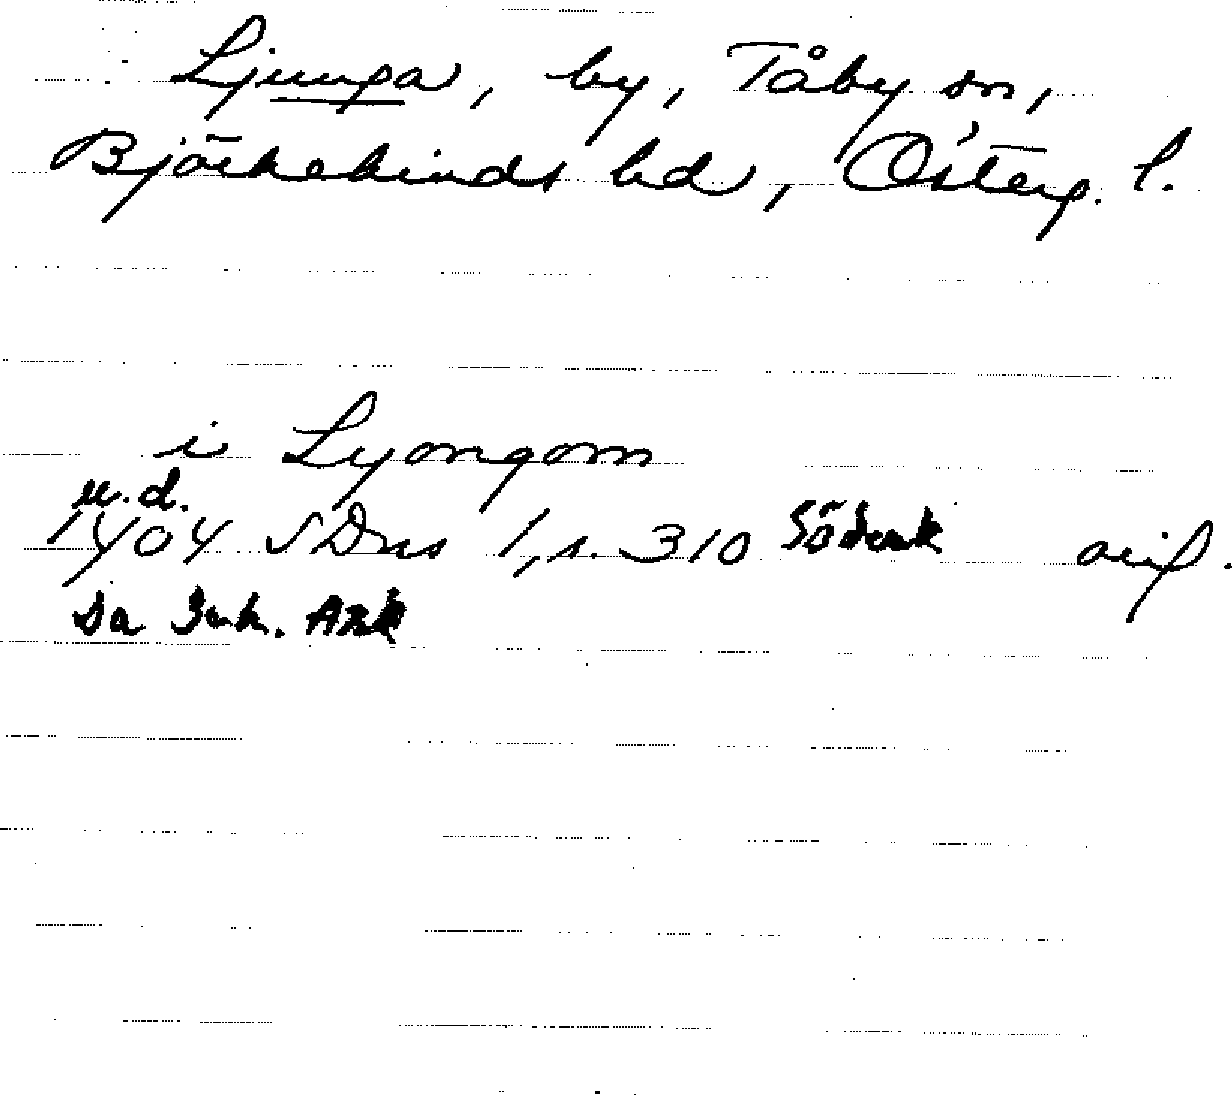 Ljunga, by, Tåby sn,
Björkekinds hd, Österg. l.
i Lyongom
u.d.
1404 SDns 1, s. 310 Söderk orig.
Da Ink. Ark